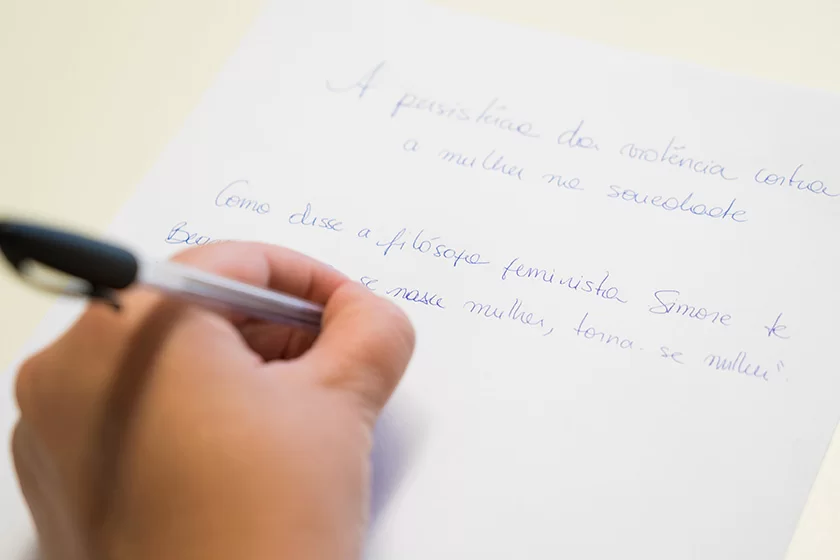 A persistência da violência contra
a mulher na sociedade
Como disse a filósofa feminista Simone te
se nasce mulher, torna-se mulher".